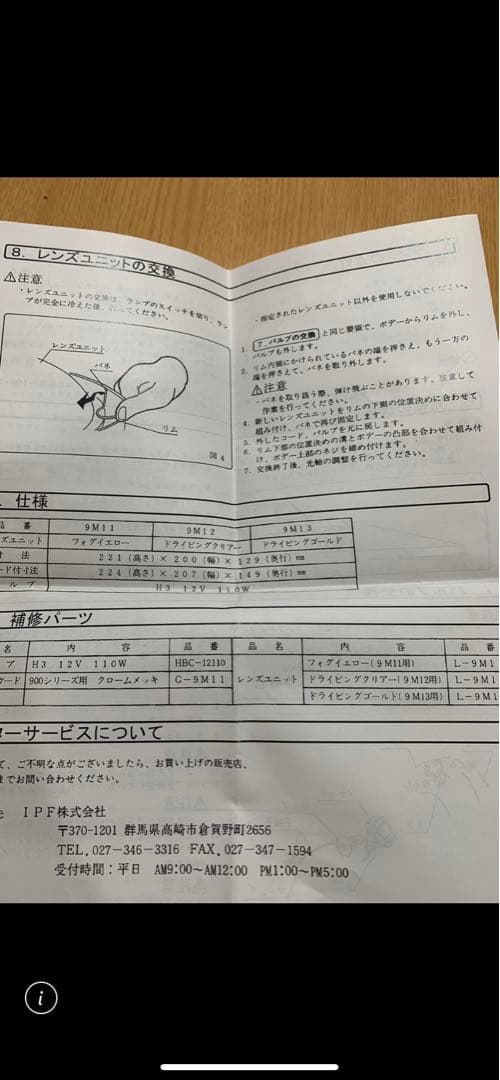 8. レンズユニットの交換
⚠注意
・レンズユニットの交換は、ランプのスイッチを切り、ラン
プが完全に冷えた後、行ってください。
レンズユニット
バネ
リム
図4
・指定されたレンズユニット以外を使用しないでください。
1. 7. バルブの交換 と同じ要領で、ボデーからリムを外し、
バルブも外します。
2. リム内側にかけられているバネの端を押さえ、もう一方の
端を押さえて、バネを取り外します。
⚠注意
・バネを取り扱う際、弾け飛ぶことがあります。注意して
作業を行ってください。
4. 新しいレンズユニットをリムの下側の位置決めに合わせて
組み付け、バネで再び固定します。
5. 外したコード、バルブを元に戻します。
6. リム下部の位置決めの溝とボデーの凸部を合わせて組み付
け、ボデー上部のネジを締め付けます。
7. 交換終了後、光軸の調整を行ってください。
. 仕様
品 番 9M11 9M12 9M13
ズユニット フォグイエロー ドライビングクリアー ドライビングゴールド
寸 法 221(高さ)×200(幅)×129(奥行)mm
ード付寸法 224(高さ)×207(幅)×149(奥行)mm
ルブ H3 12V 110W
補修パーツ
名 内 容 品 番 品 名 内 容 品 番
ブ H3 12V 110W HBC-12110 レンズユニット フォグイエロー(9M11用) L-9M1
ガード 900シリーズ用 クロームメッキ G-9M11 ドライビングクリアー(9M12用) L-9M1
ドライビングゴールド(9M13用) L-9M1
ターサービスについて
て、ご不明な点がございましたら、お買い上げの販売店、
までお問い合わせください。
先 IPF株式会社
〒370-1201 群馬県高崎市倉賀野町2656
TEL.027-346-3316 FAX.027-347-1594
受付時間:平日 AM9:00〜AM12:00 PM1:00〜PM5:00